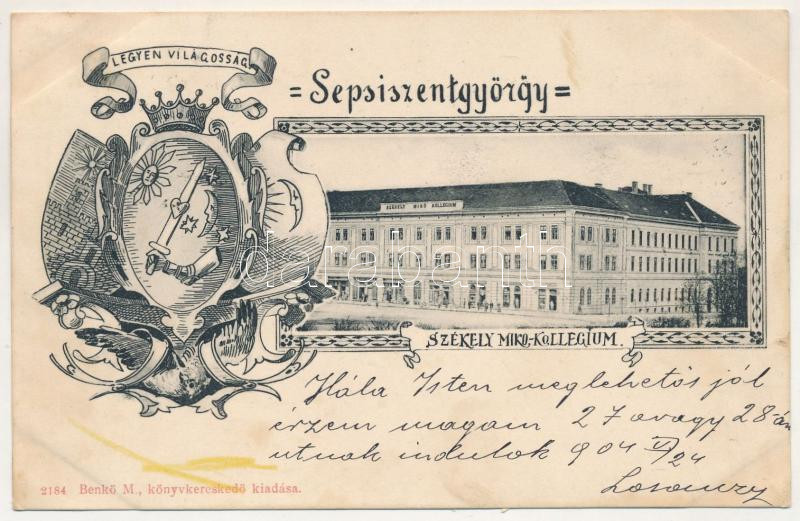 LEGYEN VILÁGOSSÁG
= Sepsiszentgyörgy =
SZÉKELY MIKÓ KOLLEGIUM
darabanth
SZÉKELY MIKO-KOLLEGIUM.
Hála Isten meglehetös jól
érzem magam 27 avagy 28-án
utnak indulok 904 VI/24
2184 Benkö M., könyvkereskedö kiadása.